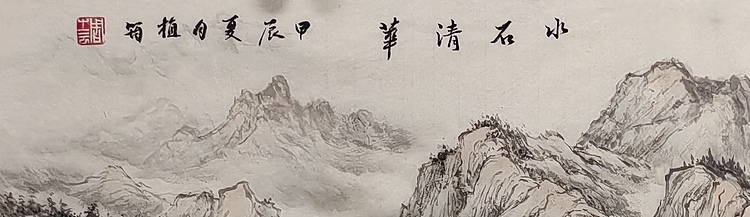 水石清華 甲辰夏月植筠